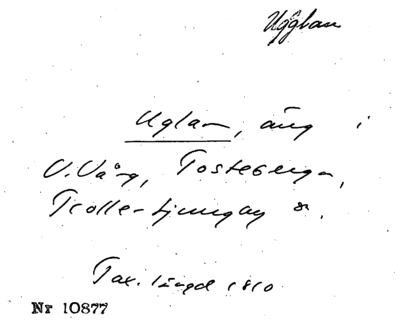 Ugglan
Uglan, äng i
V. Vång, Tosteberga,
Trolle-Ljungby sn.
Tax. längd 1810
Nr 10877